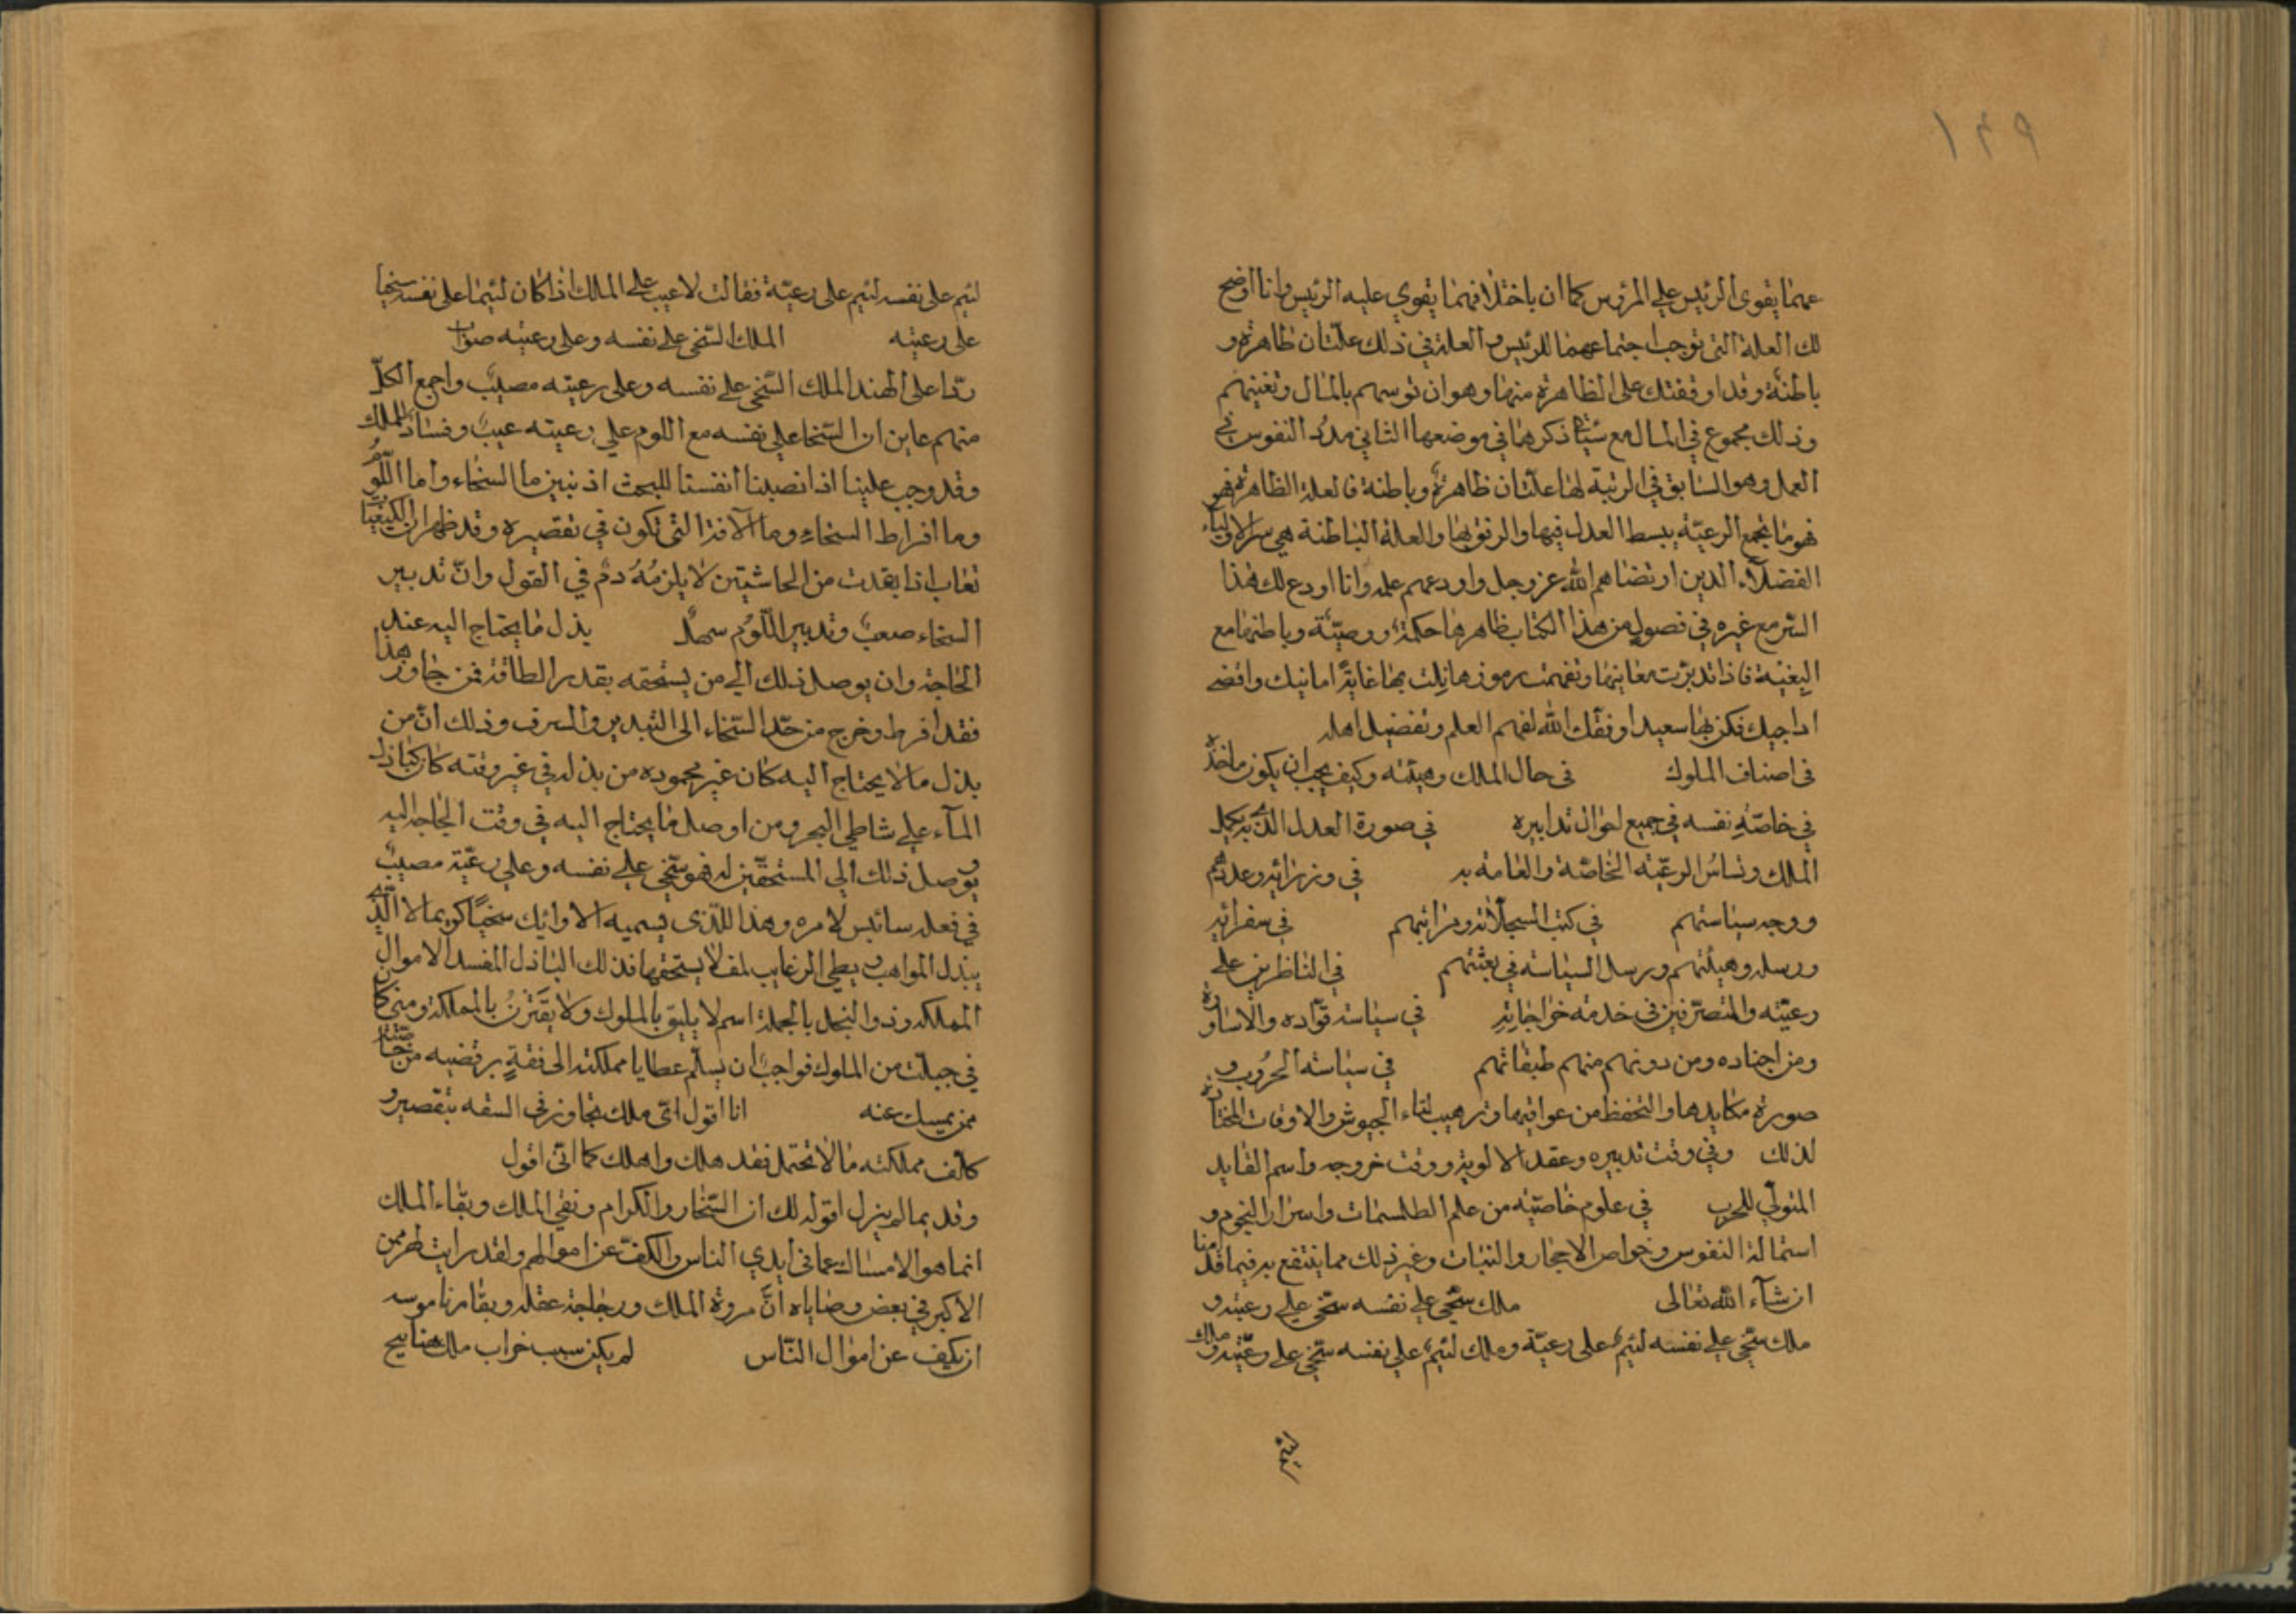 ١٤٩
عمهما يقوى الرئيس على المرؤس كما ان باختلافهما يقوى عليه الرئيس وانا اوضح
لك العلة التى توجب اجتماعهما للرئيس والعلة في ذلك علتان ظاهرة و
باطنة وقد اوقفتك على الظاهرة منها وهو ان توسمهم بالمال وتغنيهم
وذلك مجموع في المال مع شيئا ذكرهما في موضعها الثاني مدد النفوس في
العمل وهو السابق في الرتبة لها علتان ظاهرة وباطنة فالعلة الظاهرة فهو
فهو ما يجمع الرعيّة ببسط العدل فيها والرفق بها والعلة الباطنة هي سر الاولياء
الفضلاء الذين ارتضاهم الله عز وجل واودعهم علمه وانا اودع لك هذا
السر مع غيره في فصول من هذا الكتاب ظاهرها حكمة ووصيّة وباطنها مع
البغية فاذا تدبرت معانيها وتفهمت رموزها نلت بها غاية امانيك واقضى
اراجيك فكن بها سعيدا وفقك الله لفهم العلم وتفضيل اهله
في اصناف الملوك في حال الملك وهيئته وكيف يجب ان يكون ماخذه
في خاصّة نفسه في جميع احوال تدابيره في صورة العدل الذى به يكمل
الملك وتساس الرعيّة الخاصّة والعامة به في وزرائه وعددهم
ووجه سياستهم في كتب السجلاته ومراتبهم في سفرائه
ورسله وهيئتهم ورسل السياسة في بعثتهم في الناظرين على
رعيّته والمتصرّفين في خدمة خراجاته في سياسة قوّاده والاساورة
ومن اجناده ومن دونهم منهم طبقاتهم في سياسة الحروب و
صورة مكايدها والتحفظ من عواقبها وترهيب لقاء الجيوش والاوقات المختارة
لذلك وفي وقت تدبيره وعقد الالوية ووقت خروجه واسم القايد
المتولّي للحرب في علوم خاصّيّه من علم الطلسمات واسرار النجوم و
استمالة النفوس وخواص الاحجار والنبات وغير ذلك مما ينتفع به فيما قدمنا
ان شآء الله تعالى ملك سخي على نفسه سخي على رعيّته و
ملك سخي على نفسه لئيم على رعيّة وملك لئيم على نفسه سخي على رعيّته وملك
لئيم على نفسه لئيم على رعيّة فقالت لا عيب على الملك اذا كان لئيما على نفسه سخيا
على رعيته الملك السّخي على نفسه وعلى رعيته صواب
ردّا على الهند الملك السّخي على نفسه وعلى رعيته مصيب واجمع الكلّ
منهم عاين ان السّخا على نفسه مع اللوم على رعيته عيب وفساد للملك
وقد وجب علينا اذا نصبنا انفسنا للبحث اذ نبين ما السخاء وما اللّوم
وما افراط السخاء وما الآفة التي تكون في تقصيره وقد ظهر ان الكيفيّات
تعاب اذا بعدت من الحاشيتين لا يلزمه دم في القول وانّ تدبير
السخاء صعب وتدبير اللّوم سهل بذل ما يحتاج اليه عند
الحاجة وان يوصل ذلك الى من يستحقه بقدر الطاقة فمن جاوز هذا
فقد افرط وخرج من حدّ السّخاء الى التبذير والسرف وذلك انّ من
بذل ما لا يحتاج اليه كان غير محموده من بذله في غير وقته كان كباذل
المآء على شاطي البحر ومن اوصل ما يحتاج اليه في وقت الحاجة اليه
ويوصل ذلك الى المستحقين له فهو سخي على نفسه وعلى رعيّة مصيب
في فعله سائس لامره وهذا للّذى يسميه الاوائك سخيا كريما لا الّذي
يبذل المواهب ويعطي الرغايب لمن لا يستحقها فذلك الباذل المفسد الاموال
المهلكة وذو البخل بالجملة اسم لا يليق بالملوك ولا يقترن بالمملكة ومتى كان
في جبلّت من الملوك فواجب ان يسلّم عطايا مملكته الى فقة يرتضيه من خاصّته
ممن يمسك عنه انا اقول اىّ ملك تجاوز في السفه بتقصير و
كالف مملكته ما لا تحتمل فقد هلك واهلك كما انّى اقول
وقد بما لم يزل اقوله لك ان السّخار والكرام ونقي الملك وبقاء الملك
انما هو الامساك عما في ايدي الناس والكفّ عن اموالهم ولقد رايت لهرمس
الاكبر في بعض وصاياه انّ مروة الملك ورجاجة عقله وبقا مرناموسه
ان يكف عن اموال النّاس لم يكن سبب خراب ملك هنانيج